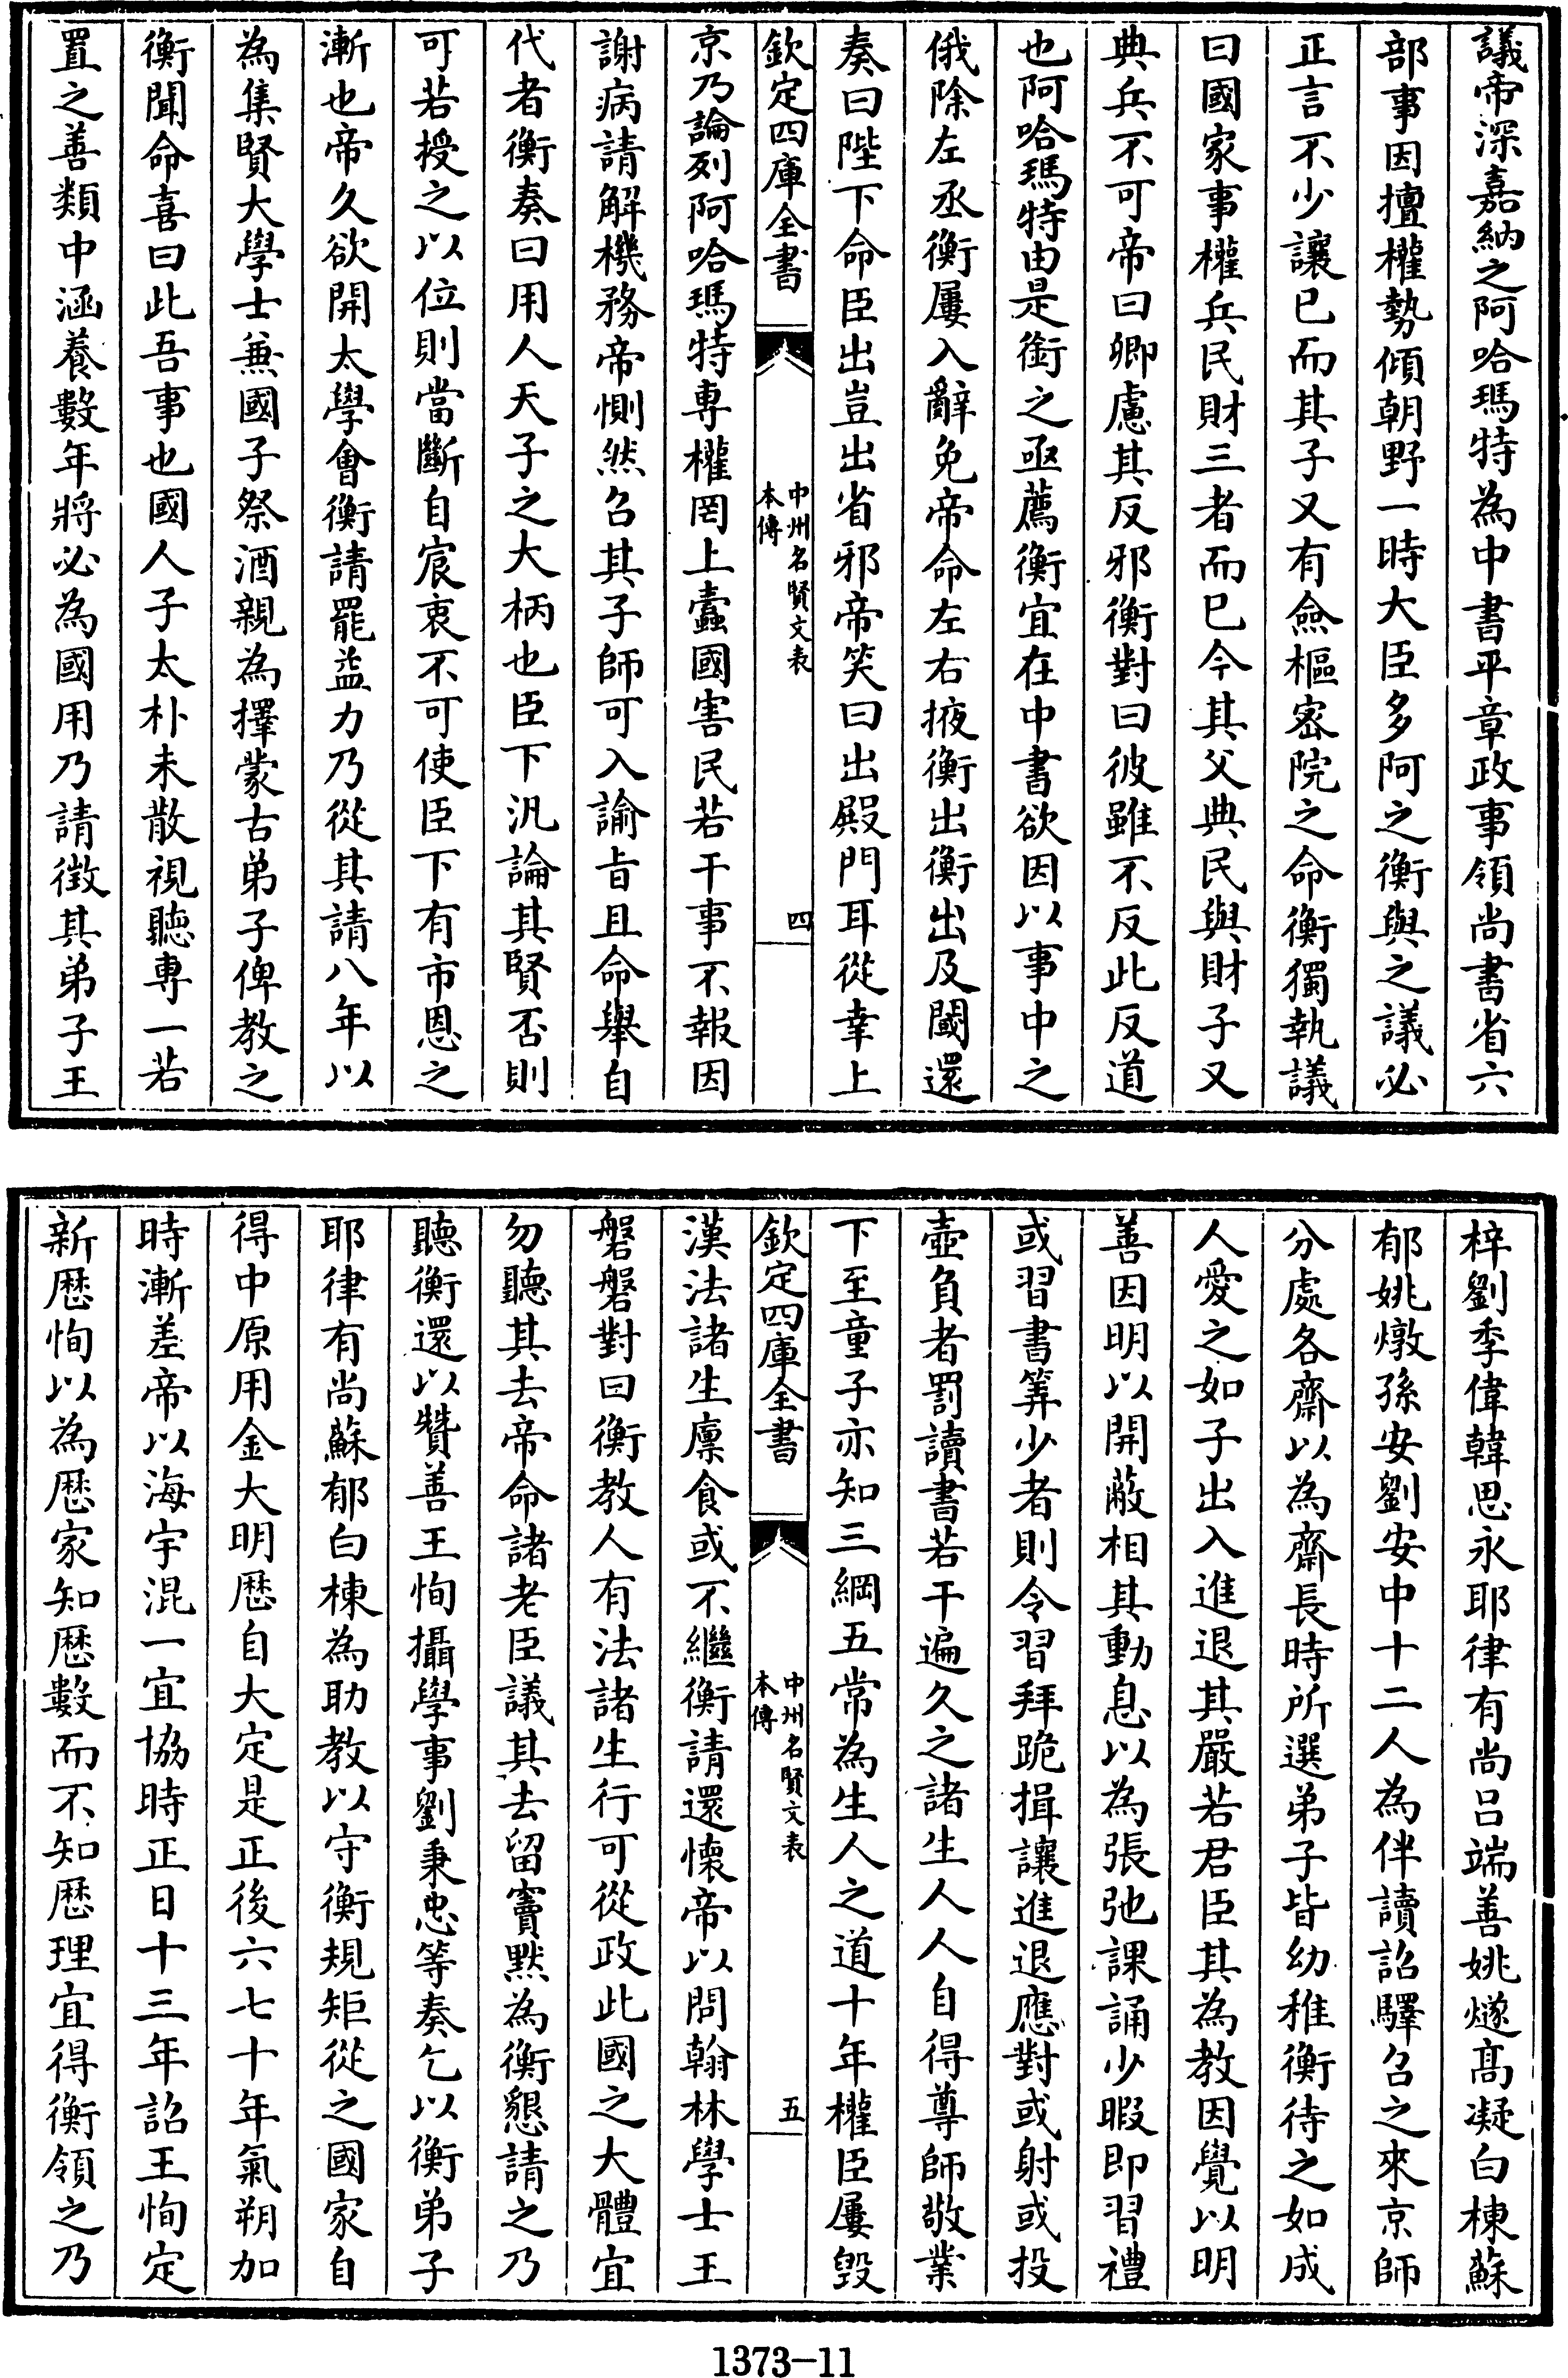 議帝深嘉納之阿哈瑪特為中書平章政事領尚書省六
部事因擅權勢傾朝野一時大臣多阿之衡與之議必
正言不少讓已而其子又有僉樞宻院之命衡獨執議
曰國家事權兵民財三者而已今其父典民與財子又
典兵不可帝曰卿慮其反邪衡對曰彼雖不反此反道
也阿哈瑪特由是銜之亟薦衡宜在中書欲因以事中之
俄除左丞衡屢入辭免帝命左右掖衡出衡出及閾還
奏曰陛下命臣出豈出省邪帝笑曰出殿門耳從幸上
欽定四庫全書
中州名賢文表
本傳
四
京乃論列阿哈瑪特專權罔上蠹國害民若干事不報因
謝病請解機務帝惻然召其子師可入諭㫖且命舉自
代者衡奏曰用人天子之大柄也臣下汎論其賢否則
可若授之以位則當斷自宸衷不可使臣下有市恩之
漸也帝久欲開太學會衡請罷益力乃從其請八年以
為集賢大學士兼國子祭酒親為擇蒙古弟子俾教之
衡聞命喜曰此吾事也國人子太朴未散視聽専一若
置之善類中涵養數年將必為國用乃請徴其弟子王
梓劉季偉韓思永耶律有尚吕端善姚燧髙凝白棟蘇
郁姚燉孫安劉安中十二人為伴讀詔驛召之來京師
分處各齋以為齋長時所選弟子皆幼稚衡待之如成
人愛之如子出入進退其嚴若君臣其為教因覺以明
善因明以開蔽相其動息以為張弛課誦少暇即習禮
或習書筭少者則令習拜跪揖讓進退應對或射或投
壺負者罰讀書若干遍久之諸生人人自得尊師敬業
下至童子亦知三綱五常為生人之道十年權臣屢毁
欽定四庫全書
中州名賢文表
本傳
五
漢法諸生廪食或不繼衡請還懐帝以問翰林學士王
磐磐對曰衡教人有法諸生行可從政此國之大體宜
勿聽其去帝命諸老臣議其去留竇默為衡懇請之乃
聽衡還以贊善王恂攝學事劉秉忠等奏乞以衡弟子
耶律有尚蘇郁白棟為助教以守衡規矩從之國家自
得中原用金大明厯自大定是正後六七十年氣朔加
時漸差帝以海宇混一宜協時正日十三年詔王恂定
新厯恂以為厯家知厯數而不知厯理宜得衡領之乃
1373-11